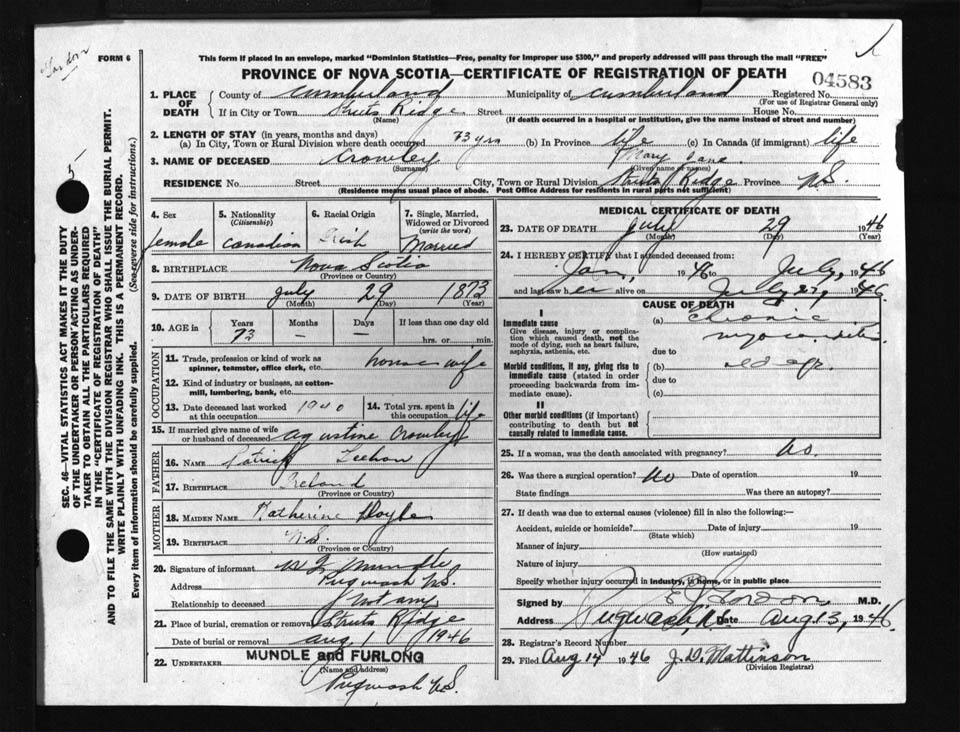 FORM 6
This form if placed in an envelope, marked "Dominion Statistics—Free, penalty for improper use $300," and properly addressed will pass through the mail "FREE"
PROVINCE OF NOVA SCOTIA—CERTIFICATE OF REGISTRATION OF DEATH
04583
1. PLACE OF DEATH
County of Cumberland Municipality of Cumberland Registered No.
(For use of Registrar General only)
If in City or Town Ridge Street House No.
(Name) (If death occurred in a hospital or institution, give the name instead of street and number)
2. LENGTH OF STAY (in years, months and days)
(a) In City, Town or Rural Division where death occurred 73 yrs (b) In Province life (c) In Canada (if immigrant) life
3. NAME OF DECEASED Crowley Mary Jane
(Surname) (Given name or names)
RESIDENCE No. Street City, Town or Rural Division Ridge Province N.S.
(Residence means usual place of abode. Post Office Address for residents in rural parts not sufficient)
4. Sex
female
5. Nationality
(Citizenship)
Canadian
6. Racial Origin
Irish
7. Single, Married, Widowed or Divorced
(write the word)
Married
8. BIRTHPLACE Nova Scotia
(Province or Country)
9. DATE OF BIRTH July 29 1873
(Month) (Day) (Year)
10. AGE in
Years Months Days If less than one day old
73 — — hrs. or min.
OCCUPATION
11. Trade, profession or kind of work as spinner, teamster, office clerk, etc. house wife
12. Kind of industry or business, as cotton-mill, lumbering, bank, etc.
13. Date deceased last worked at this occupation 1940
14. Total yrs. spent in this occupation life
15. If married give name of wife or husband of deceased Agustine Crowley
FATHER
16. NAME Patrick
17. BIRTHPLACE Ireland
(Province or Country)
MOTHER
18. MAIDEN NAME Katherine Doyle
19. BIRTHPLACE N.S.
(Province or Country)
20. Signature of informant Mundle
Address Pugwash N.S.
Relationship to deceased not any
21. Place of burial, cremation or removal Ridge
Date of burial or removal Aug 1 1946
22. UNDERTAKER MUNDLE and FURLONG
(Name and address)
Pugwash N.S.
MEDICAL CERTIFICATE OF DEATH
23. DATE OF DEATH July 29 1946
(Month) (Day) (Year)
24. I HEREBY CERTIFY that I attended deceased from:
Jan, 1946 to July, 1946
and last saw her alive on July 27, 1946.
CAUSE OF DEATH
I
Immediate cause
Give disease, injury or complication which caused death, not the mode of dying, such as heart failure, asphyxia, asthenia, etc.
(a) Chronic
myocarditis
due to
Morbid conditions, if any, giving rise to immediate cause (stated in order proceeding backwards from immediate cause).
(b) old age
due to
(c)
II
Other morbid conditions (if important) contributing to death but not causally related to immediate cause.
25. If a woman, was the death associated with pregnancy? No.
26. Was there a surgical operation? No Date of operation 19
State findings Was there an autopsy?
27. If death was due to external causes (violence) fill in also the following:—
Accident, suicide or homicide? Date of injury 19
(State which)
Manner of injury
(How sustained)
Nature of injury
Specify whether injury occurred in industry, in home, or in public place
Signed by Gordon, M.D.
Address Pugwash, N.S. Date Aug 13, 1946.
28. Registrar's Record Number
29. Filed Aug 14 1946 J. D. Mattinson
(Division Registrar)
SEC. 46—VITAL STATISTICS ACT MAKES IT THE DUTY
OF THE UNDERTAKER OR PERSON ACTING AS UNDER-
TAKER TO OBTAIN ALL THE PARTICULARS REQUIRED
IN THE "CERTIFICATE OF REGISTRATION OF DEATH"
AND TO FILE THE SAME WITH THE DIVISION REGISTRAR WHO SHALL ISSUE THE BURIAL PERMIT.
WRITE PLAINLY WITH UNFADING INK. THIS IS A PERMANENT RECORD.
Every item of information should be carefully supplied. (See reverse side for instructions.)
5